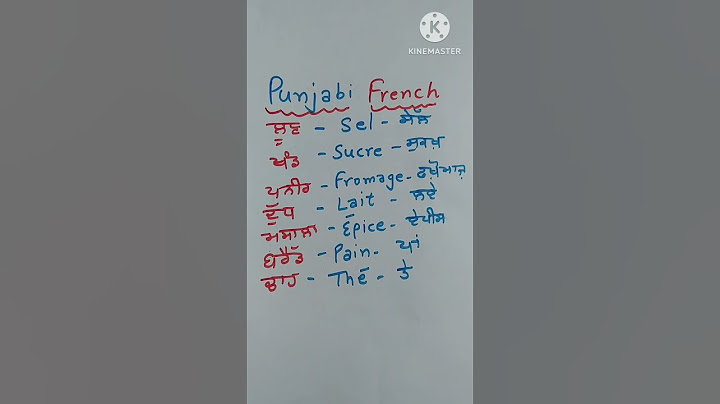 KINEMASTER
Punjabi French
ਲੂਣ - Sel - ਸੇੱਲ
ਖੰਡ - Sucre - ਸੁਕਖ਼
ਪਨੀਰ - Fromage - ਫਖ਼ੋਮਾਜ਼
ਦੁੱਧ - Lait - ਲਏ
ਮਸਾਲਾ - Épice - ਏਪੀਸ
ਬਰੈੱਡ - Pain - ਪਾਂ
ਚਾਹ - Thé - ਤੇ